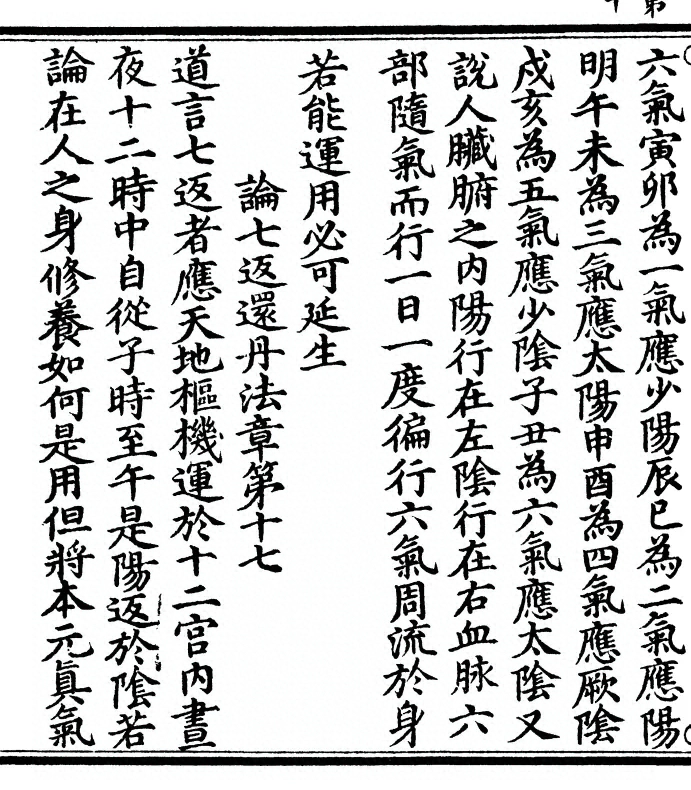 六氣寅卯為一氣應少陽辰巳為二氣應陽
明午未為三氣應太陽申酉為四氣應厥陰
戌亥為五氣應少陰子丑為六氣應太陰又
說人臟腑之内陽行在左陰行在右血脉六
部隨氣而行一日一度徧行六氣周流於身
若能運用必可延生
論七返還丹法章第十七
道言七返者應天地樞機運於十二宮内晝
夜十二時中自從子時至午是陽返於陰若
論在人之身修養如何是用但將本元眞氣